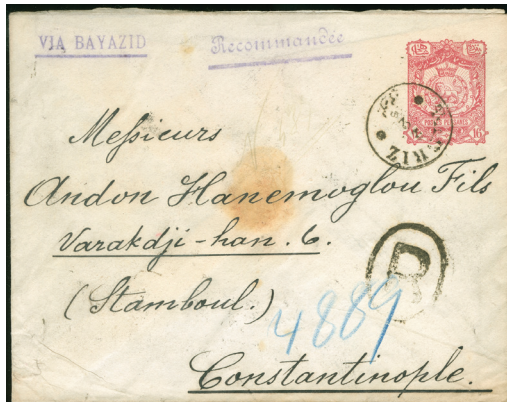 VIA BAYAZID
Recommandée
16
Meſsieurs
Andon Hanemoglou Fils
Varakdji-han. 6.
(Stamboul.)
R
4889
Constantinople.